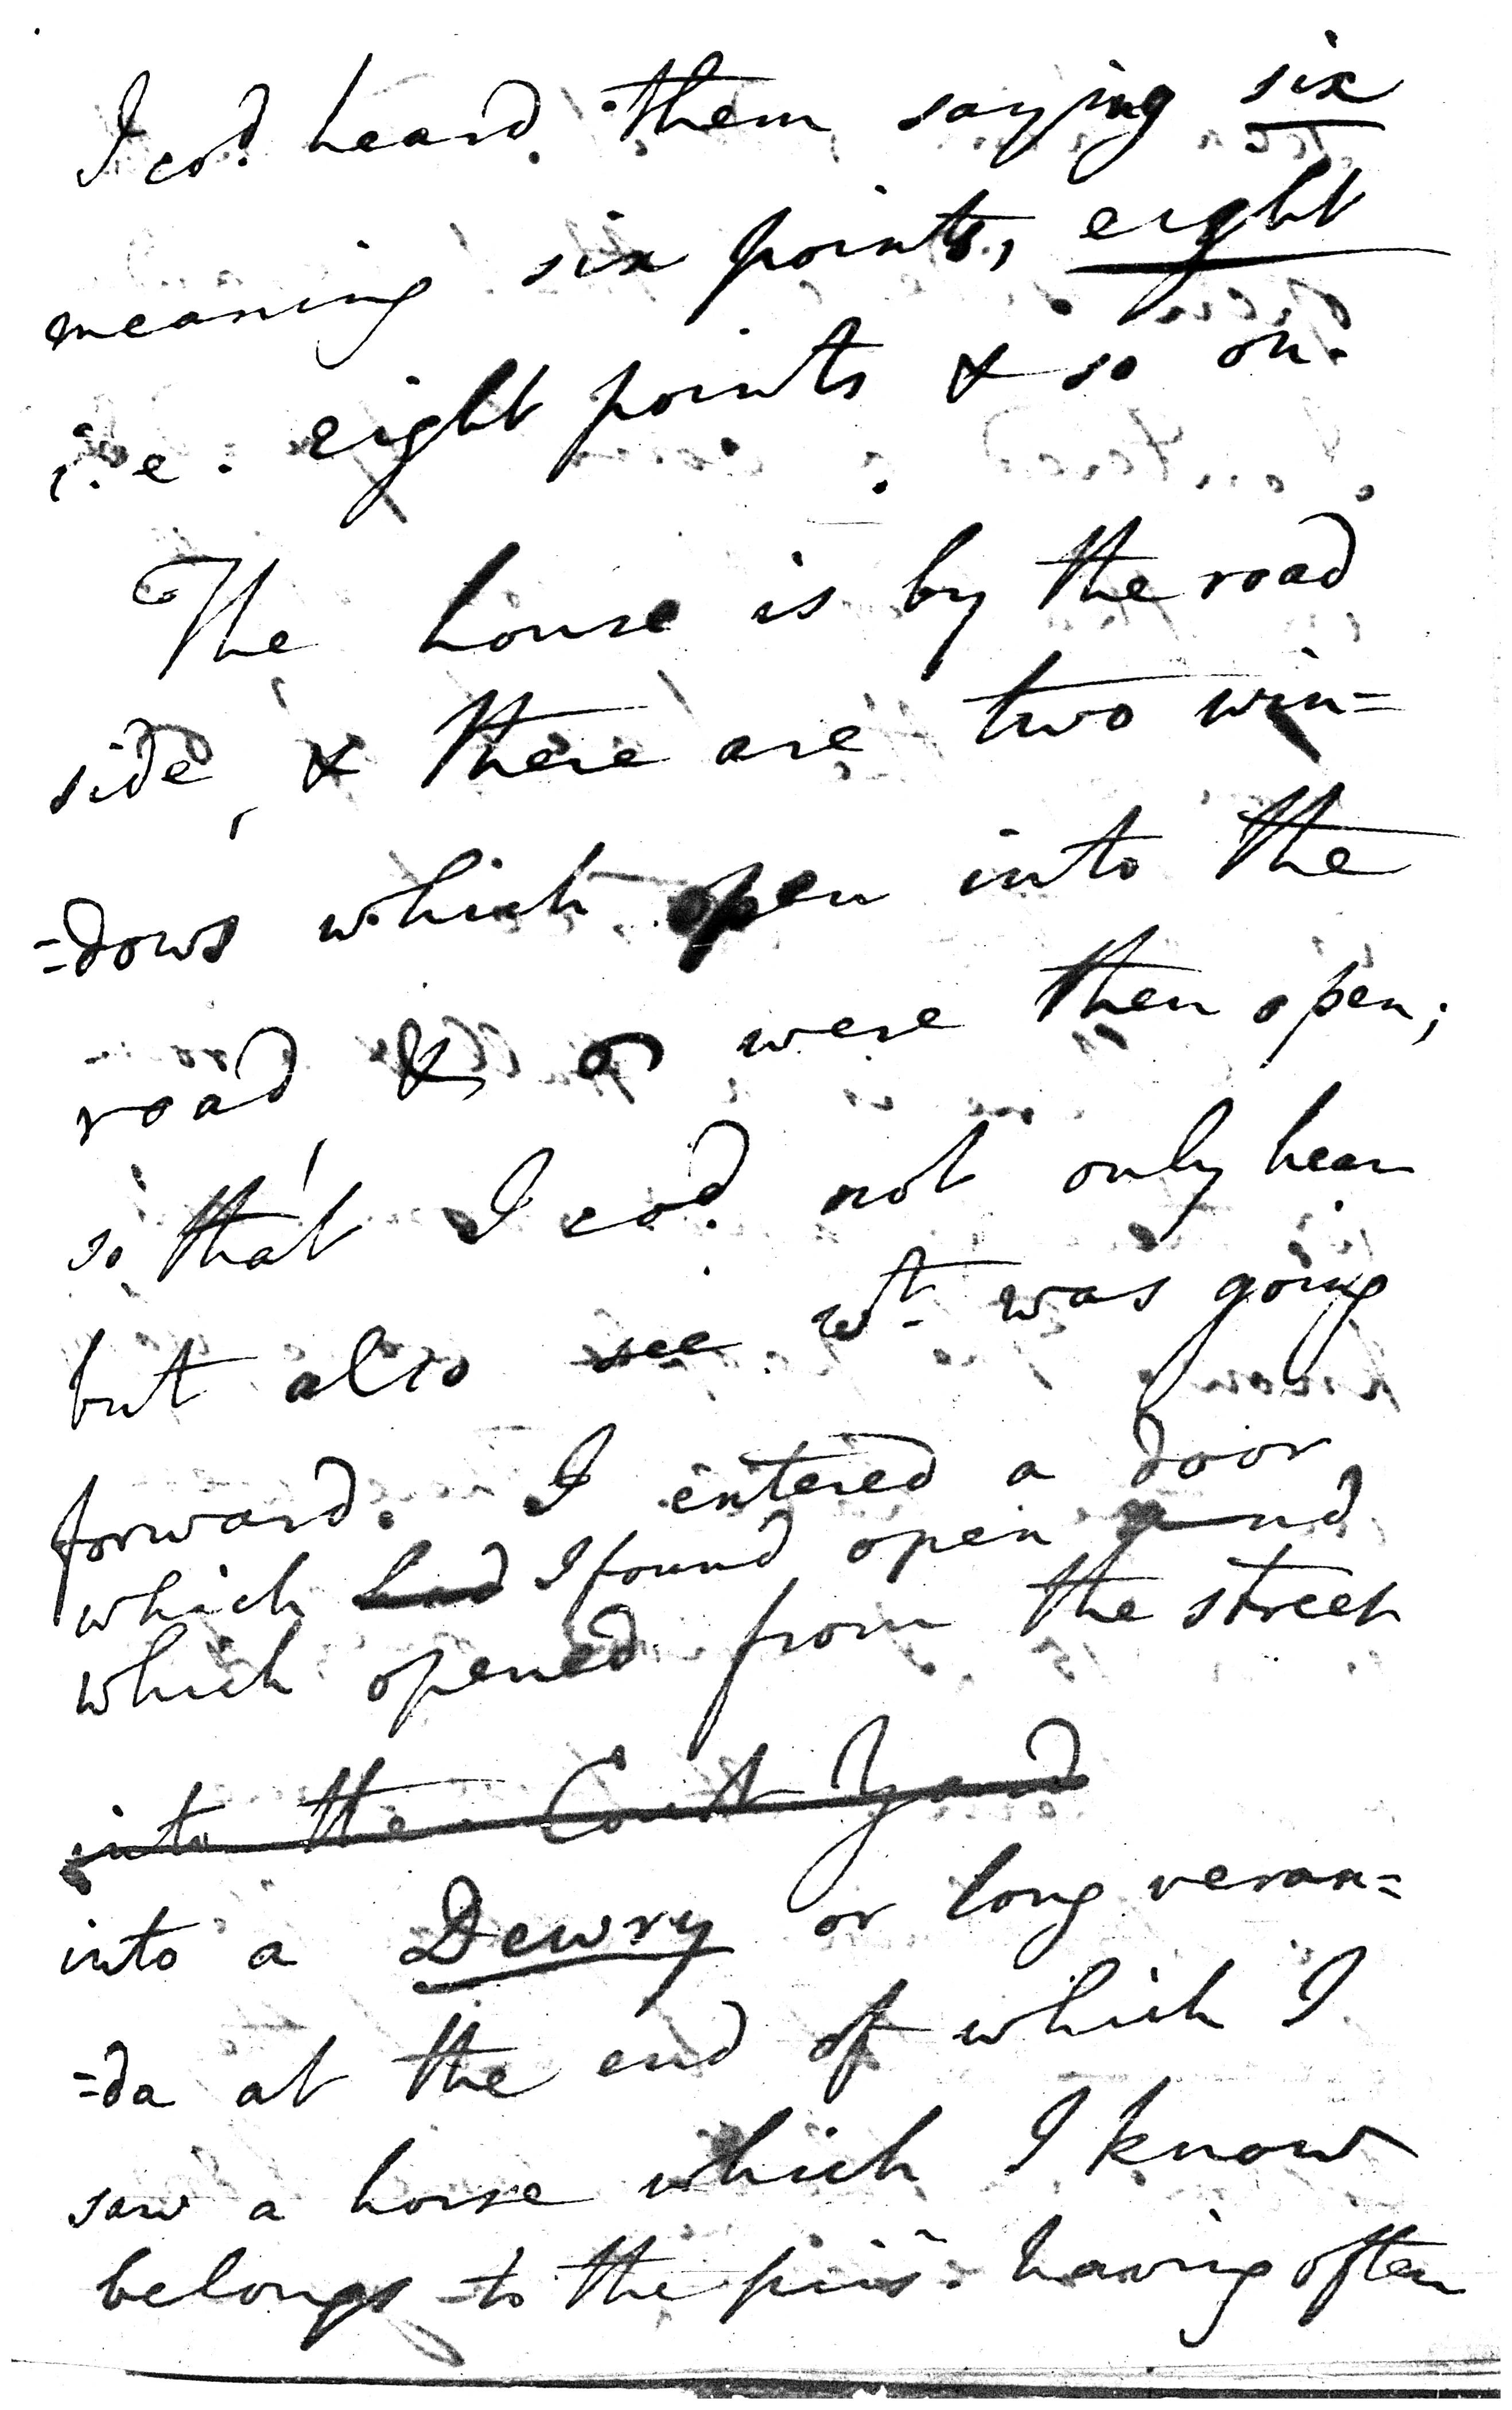 I cod. heard them saying six
meaning six points, eight
i.e. eight points & so on.
The house is by the road
side, & there are two win=
=dows which open into the
road, & were then open;
so that I cod. not only hear
but also see wt. was going
forward. I entered a door
which had I found open and
which opened from the street
into the Court Yard
into a Dewry or long veran=
=da at the end of which I
saw a horse which I know
belongs to the having often